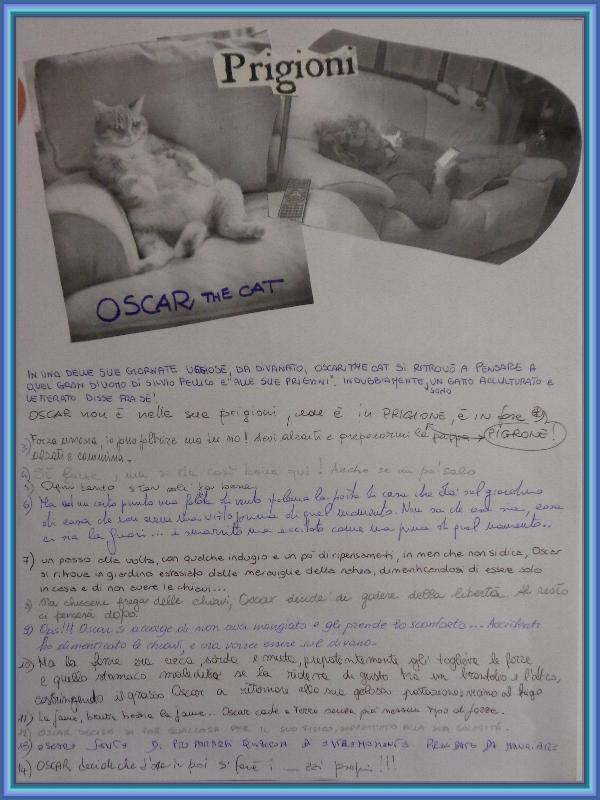 Prigioni
OSCAR THE CAT
IN UNA DELLE SUE GIORNATE UGGIOSE, DA DIVANATO, OSCAR THE CAT SI RITROVÒ A PENSARE A
QUEL GRAN D'UOMO DI SILVIO PELLICO E "ALLE SUE PRIGIONI". INDUBBIAMENTE, UN GATTO ACCULTURATO E
LETTERATO DISSE FRA SÉ! SONO
OSCAR non è nelle sue prigioni, è in PRIGIONE, è in fase
PIGRONE!
3) Forza, io posso poltrire ma tu no! devi alzarti e prepararmi la pappa
alzati e cammina.
4) Sì forse, ma si sta così bene qui! Anche se un po' solo
5) Ogni tanto star soli fa bene
6) Ma ad un certo punto una folata di vento spalanca la porta di casa che dà sul giardino
di casa che non aveva mai visto prima di quel momento. Non sa che cosa
ci sia là fuori... è smarrito ma eccitato come mai prima di quel momento..
7) un passo alla volta, con qualche indugio e un pò di ripensamenti, in men che non si dica, Oscar
si ritrova in giardino estasiato dalle meraviglie della natura, dimenticandosi di essere solo
in casa e di non avere le chiavi...
8) Ma chissene frega delle chiavi, Oscar decide di godere della libertà. Al resto
ci penserà dopo.
9) Ops!!! Oscar si accorge di non aver mangiato e gli prende lo sconforto... Accidenti
ho dimenticato le chiavi, e ora vorrei essere sul divano.
10) Ma la fame era cieca, sorda e muta, prepotentemente gli toglieva le forze
e quello stomaco maledetto se la rideva di gusto tra un brontolio e l'altro,
costringendo il grasso Oscar a ritornare alla sua golosa
11) La fame, brutta bestia la fame... Oscar cade a terra senza più nessun tipo di forze.
12) OSCAR DECIDE DI FAR QUALCOSA PER IL SUO FISICO, ALLA SUA GOLOSITÀ.
13) OSCAR DI DA MANGIARE
14) OSCAR decide che d'ora in poi si farà i propri!!!